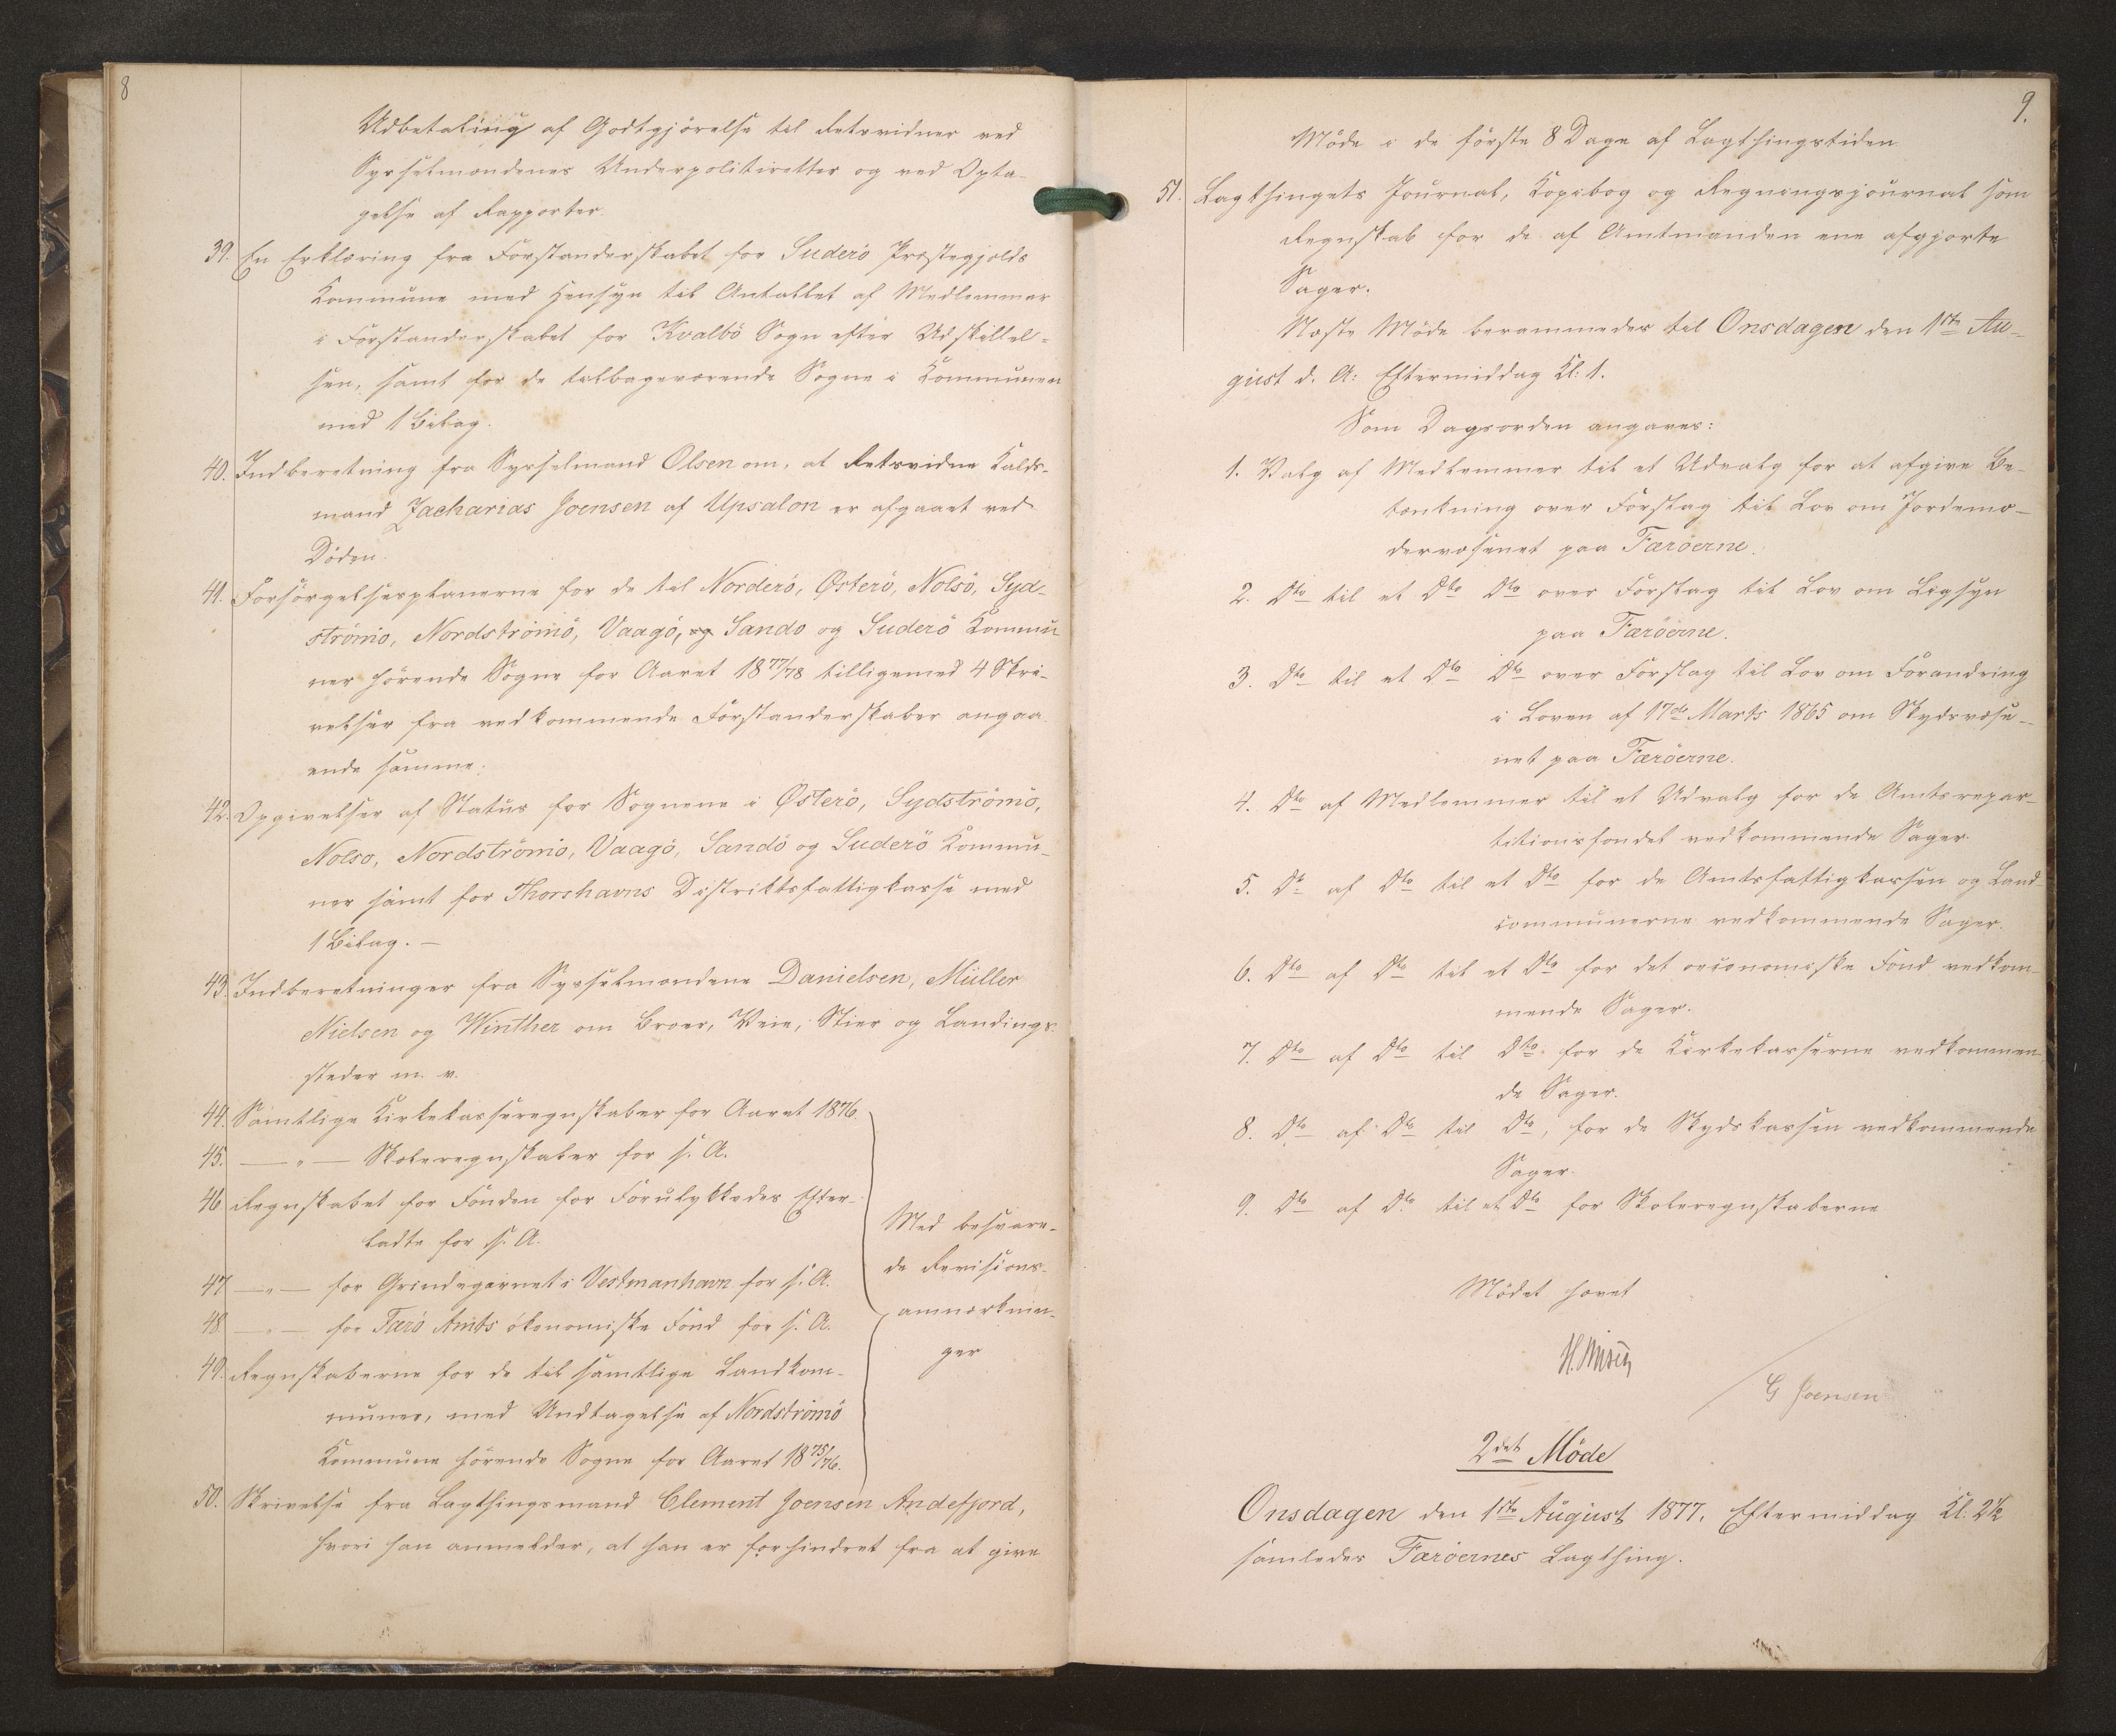 8
Udbetaling af Godtgjörelse til Retsvidner ved
Sysselmændenes Underpolitiretter og ved Opta-
gelse af Rapporter.
39. En Erklæring fra Forstanderskabet for Suderö Præstegjelds
Kommune med Hensyn til Antallet af Medlemmer
i Forstanderskabet for Kvalbö Sogn efter Udskillel-
sen, samt for de tilbageværende Sogne i Kommunen
med 1 Bilag.
40. Indberetning fra Sysselmand Olsen om, at Retsvidne Kalds-
mand Zacharias Joensen af Upsalon er afgaaet ved
Döden.
41. Forsörgelsesplanerne for de til Norderö, Østerö, Nolsö, Syd-
strömö, Nordströmö, Vaagö, og Sandö og Suderö Kommu
ner hörende Sogne for Aaret 1877/78 tilligemed 4 Skri-
velser fra vedkommende Forstanderskaber angaa-
ende samme.
42. Opgivelser af Status for Sognene i Østerö, Sydströmö,
Nolsö, Nordströmö, Vaagö, Sandö og Suderö Kommu-
ner samt for Thorshavns Distriktsfattigkasse med
1 Bilag. —
43. Indberetninger fra Sysselmændene Danielsen, Müller
Nielsen og Winther om Broer, Veie, Stier og Landings-
steder m. v.
44. Samtlige Kirkekasseregnskaber for Aaret 1876.
45. — „ — Skoleregnskaber for s. A.
46. Regnskabet for Fonden for Forulykkedes Efter-
ladte for s. A.
47 — „ — for Grindegarnet i Vestmanhavn for s. A.
48. — „ — for Færö Amts ökonomiske Fond for s. A.
49. Regnskaberne for de til samtlige Landkom-
muner, med Undtagelse af Nordströmö
Kommune hörende Sogne for Aaret 1875/76.
Med besvare-
de Revisions-
anmærknin-
ger
50. Skrivelse fra Lagthingsmand Clement Joensen Andefjord,
hvori han anmelder, at han er forhindret fra at give
9.
Möde i de förste 8 Dage af Lagthingstiden.
51. Lagthingets Journal, Kopibog og Regningsjournal som
Regnskab for de af Amtmanden ene afgjorte
Sager.
Næste Möde berammedes til Onsdagen den 1ste Au-
gust d. A: Eftermiddag Kl: 1.
Som Dagsorden angaves:
1. Valg af Medlemmer til et Udvalg for at afgive Be-
tænkning over Forslag til Lov om Jordemo-
dervæsenet paa Færöerne.
2. Dto til et Dto Dto over Forslag til Lov om Ligsyn
paa Færöerne.
3. Dto til et Dto Dto over Forslag til Lov om Forandring
i Loven af 17de Marts 1865 om Skydsvæse-
net paa Færöerne.
4. Dto af Medlemmer til et Udvalg for de Amtsrepar-
titionsfondet vedkommende Sager.
5. Dto af Dto til et Dto for de Amtsfattigkassen og Land-
communerne vedkommende Sager.
6. Dto af Dto til et Dto for det oeconomiske Fond vedkom-
mende Sager.
7. Dto af Dto til Dto for de Kirkekasserne vedkommen-
de Sager.
8. Dto af Dto til Dto, for de Skydskassen vedkommende
Sager.
9. Dto af Dto til et Dto for Skoleregnskaberne
Mödet hævet
G Joensen
2det Möde
Onsdagen den 1ste August 1877, Eftermiddag Kl. 2½
samledes Færöernes Lagthing.